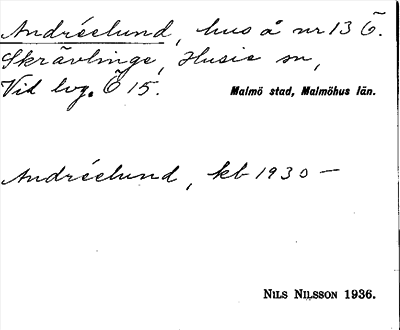 Andréelund, hus å nr 13 Ö.
Skrävlinge, Husie sn,
Vid lvg. Ö 15. Malmö stad, Malmöhus län.
Andréelund, kb 1930 —
NILS NILSSON 1936.